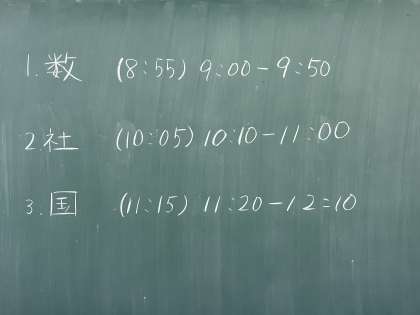 1.数 (8:55) 9:00-9:50
2.社 (10:05) 10:10-11:00
3.国 (11:15) 11:20-12:10